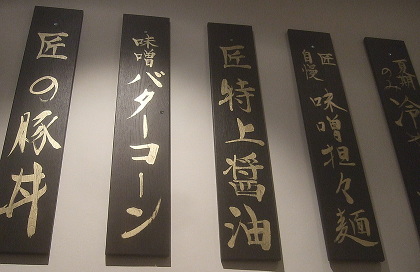 匠の豚丼
味噌バターコーン
匠特上醤油
匠自慢
味噌担々麺
のみ
冷